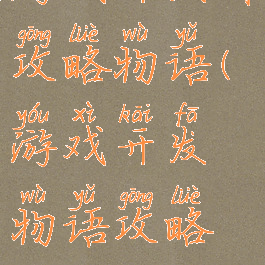 gōng lüè wù yǔ
攻略物语(
yóu xì kāi fā
游戏开发
wù yǔ gōng lüè
物语攻略